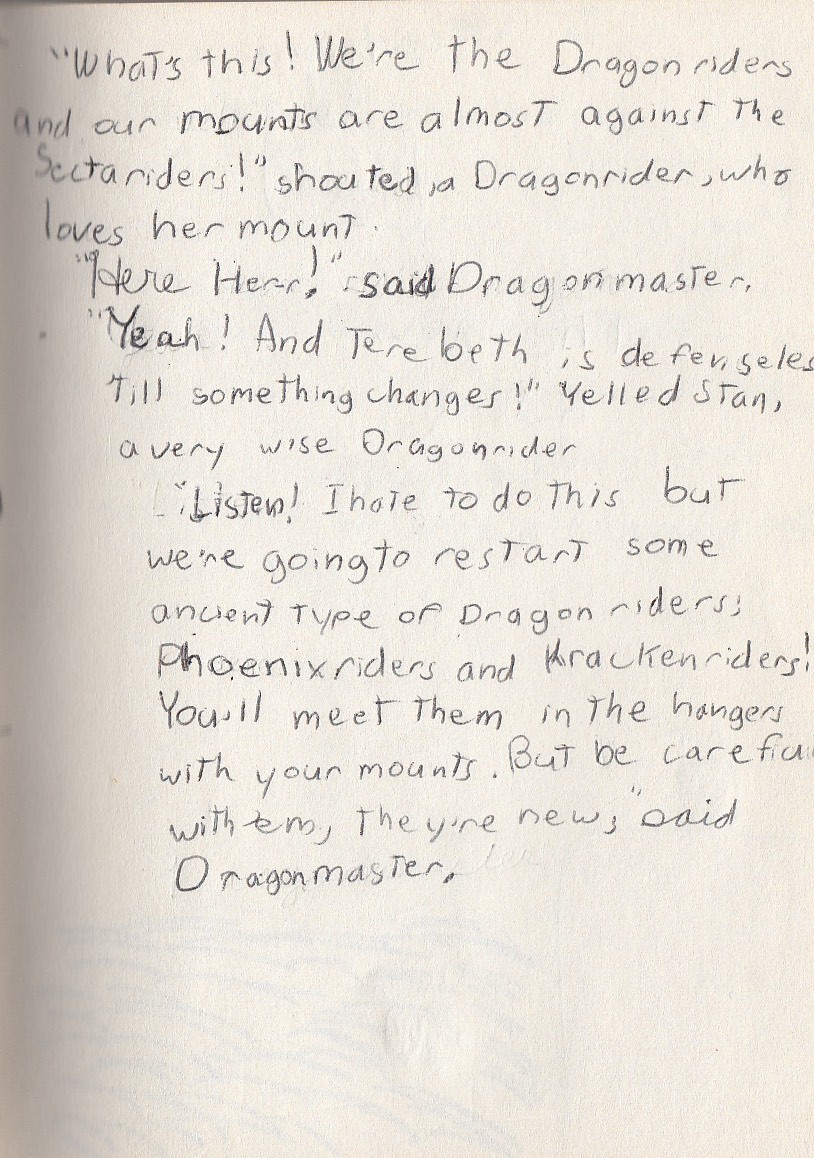 "What's this! We're the Dragonriders
and our mounts are almost against the
Sectariders!" shouted, a Dragonrider, who
loves her mount.
"Here Herr!" said Dragonmaster.
"Yeah! And Terebeth is defenseles
till something changes!" Yelled Stan,
a very wise Dragonrider
"Listen! I hate to do this but
we're going to restart some
ancient type of Dragonriders;
Phoenixriders and Krackenriders!
You'll meet them in the hangers
with your mounts. But be carefiul
with em, they're new;" said
Dragonmaster.